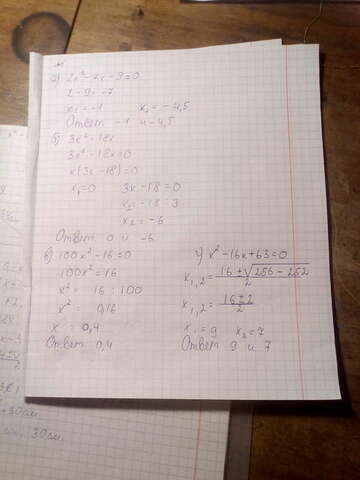 №1
а) 2x² - 7x - 9 = 0
2 - 9 = -7
x₁ = -1 x₂ = -4,5
Ответ -1 и -4,5
б) 3x² = 18x
3x² - 18x = 0
x(3x - 18) = 0
x₁ = 0 3x - 18 = 0
x₂ = -18 : 3
x₂ = -6
Ответ 0 и -6
в) 100x² - 16 = 0
100x² = 16
x² = 16 : 100
x² = 0,16
x = 0,4
Ответ 0,4
г) x² - 16x + 63 = 0
x₁,₂ = (16 ± √(256 - 252)) / 2
x₁,₂ = (16 ± 2) / 2
x₁ = 9 x₂ = 7
Ответ 9 и 7
+30см.
30см.